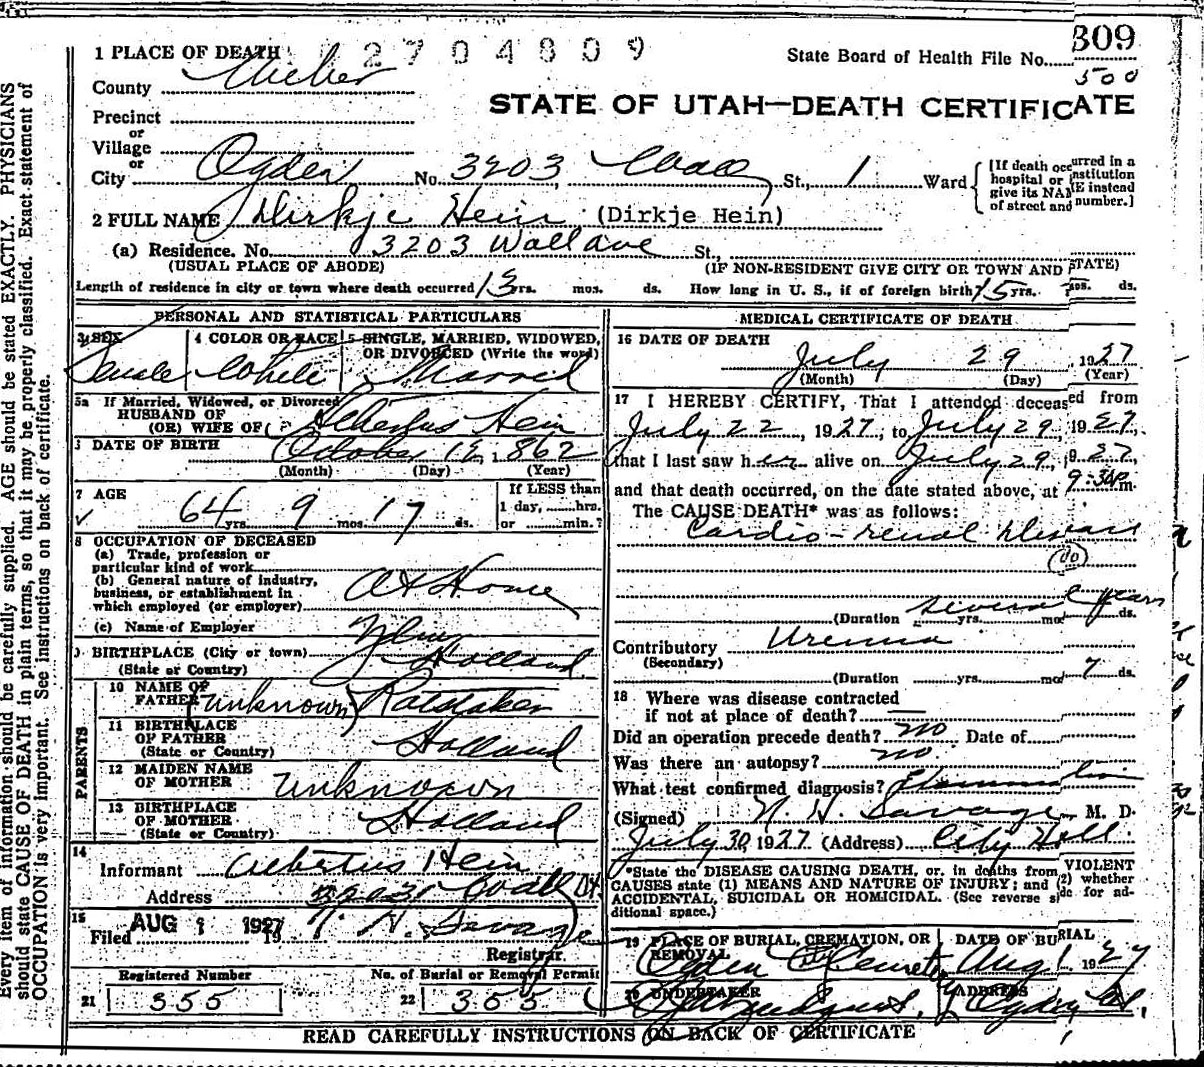 Every item of information should be carefully supplied. AGE should be stated EXACTLY. PHYSICIANS
should state CAUSE OF DEATH in plain terms, so that it may be properly classified. Exact statement of
OCCUPATION is very important. See instructions on back of certificate.
1 PLACE OF DEATH 2704809 State Board of Health File No. 309
500
County Weber
STATE OF UTAH—DEATH CERTIFICATE
Precinct
or
Village
or
City Ogden No. 3203 Wall St., 1 Ward
[If death occurred in a
hospital or institution
give its NAME instead
of street and number.]
2 FULL NAME Dirkje Hein (Dirkje Hein)
(a) Residence. No. 3203 Wall ave St.,
(USUAL PLACE OF ABODE) (IF NON-RESIDENT GIVE CITY OR TOWN AND STATE)
Length of residence in city or town where death occurred 15 yrs. mos. ds. How long in U. S., if of foreign birth? 15 yrs. mos. ds.
PERSONAL AND STATISTICAL PARTICULARS
3 SEX 4 COLOR OR RACE 5 SINGLE, MARRIED, WIDOWED,
OR DIVORCED (Write the word)
Female White Married
5a If Married, Widowed, or Divorced
HUSBAND OF
(OR) WIFE OF Albertus Hein
DATE OF BIRTH October 12, 1862
(Month) (Day) (Year)
7 AGE If LESS than
1 day, hrs.
64 yrs. 9 mos. 17 ds. or min.?
8 OCCUPATION OF DECEASED
(a) Trade, profession or
particular kind of work
(b) General nature of industry,
business, or establishment in
which employed (or employer) At Home
(c) Name of Employer
9 BIRTHPLACE (City or town)
(State or Country) Holland
PARENTS
10 NAME OF
FATHER (unknown)
11 BIRTHPLACE
OF FATHER
(State or Country) Holland
12 MAIDEN NAME
OF MOTHER Unknown
13 BIRTHPLACE
OF MOTHER
(State or Country) Holland
14
Informant Albertus Hein
Address 3203 Wall
15 Filed AUG 1 1927 19 H. Savage
Registrar
Registered Number No. of Burial or Removal Permit
21 355 22 355
MEDICAL CERTIFICATE OF DEATH
16 DATE OF DEATH
July 29 1927
(Month) (Day) (Year)
17 I HEREBY CERTIFY, That I attended deceased from
July 22, 1927, to July 29, 1927,
that I last saw her alive on July 29, 1927
and that death occurred, on the date stated above, at 9:30P m.
The CAUSE DEATH* was as follows:
Cardio-renal disease
(90)
several years
(Duration yrs. mos. ds.
Contributory Uremia
(Secondary)
(Duration yrs. mos. 7 ds.
18 Where was disease contracted
if not at place of death? —
Did an operation precede death? no Date of
Was there an autopsy? no
What test confirmed diagnosis?
(Signed) H. Savage M. D.
July 30, 1927 (Address) City Hall
*State the DISEASE CAUSING DEATH, or, in deaths from VIOLENT
CAUSES state (1) MEANS AND NATURE OF INJURY; and (2) whether
ACCIDENTAL, SUICIDAL OR HOMICIDAL. (See reverse side for ad-
ditional space.)
19 PLACE OF BURIAL, CREMATION, OR
REMOVAL DATE OF BURIAL
Ogden City Cemetery Aug 1 1927
20 UNDERTAKER ADDRESS
Ogden
READ CAREFULLY INSTRUCTIONS ON BACK OF CERTIFICATE